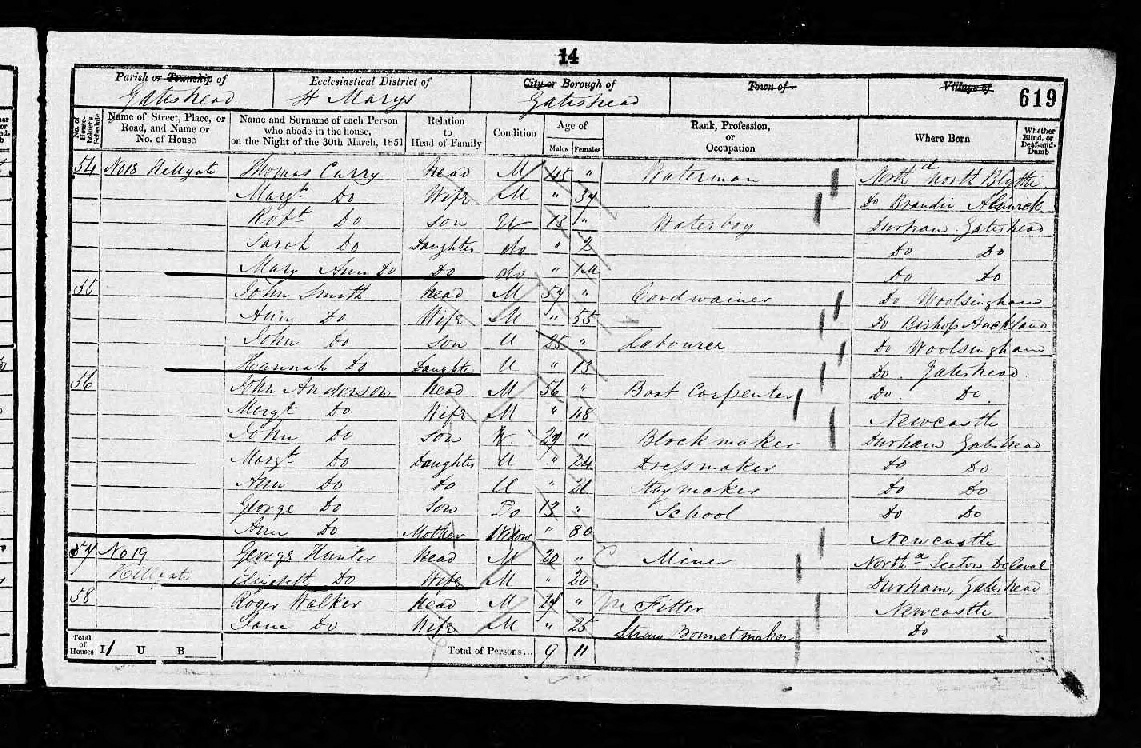 14
Parish or Township of Ecclesiastical District of City or Borough of Town of Village of
Gateshead St Marys Gateshead 619
No. of House-holder's Schedule Name of Street, Place, or Road, and Name or No. of House Name and Surname of each Person who abode in the house, on the Night of the 30th March, 1851 Relation to Head of Family Condition Age of Males Females Rank, Profession, or Occupation Where Born Whether Blind, or Deaf-and-Dumb
54 No 18 Hillgate Thomas Curry Head M 45 " Waterman North North Blythe
Margt Do Wife M " 34 Do Alnwick
Robt Do Son U 13 " Waterboy Durham Gateshead
Sarah Do Daughter do " 2 Do Do
Mary Ann Do Do do " Do Do
55 John Smith Head M 54 " Cordwainer Do Woolsingham
Ann Do Wife M " 55 Do Bishop Auckland
John Do Son U 25 " Labourer Do Woolsingham
Hannah Do Daughter U " 13 Do Gateshead
56 John Anderson Head M 56 " Boat Carpenter Do Do
Margt Do Wife M " 48 Newcastle
John Do Son " Block maker Durham Gateshead
Margt Do Daughter U " 24 Dressmaker Do Do
Ann Do Do U " 21 Staymaker Do Do
George Do Son Do 13 " School Do Do
Ann Do Mother Widow " 80 Newcastle
57 No 19 George Hunter Head M 20 " C Miner North Seaton Delaval
Hillgate Elizabeth Do Wife M " 20 Durham, Gateshead
58 Roger Walker Head M " Fitter Newcastle
Jane Do Wife M " 25 Straw Bonnet maker Do
Total of Houses I U B Total of Persons... 9 11